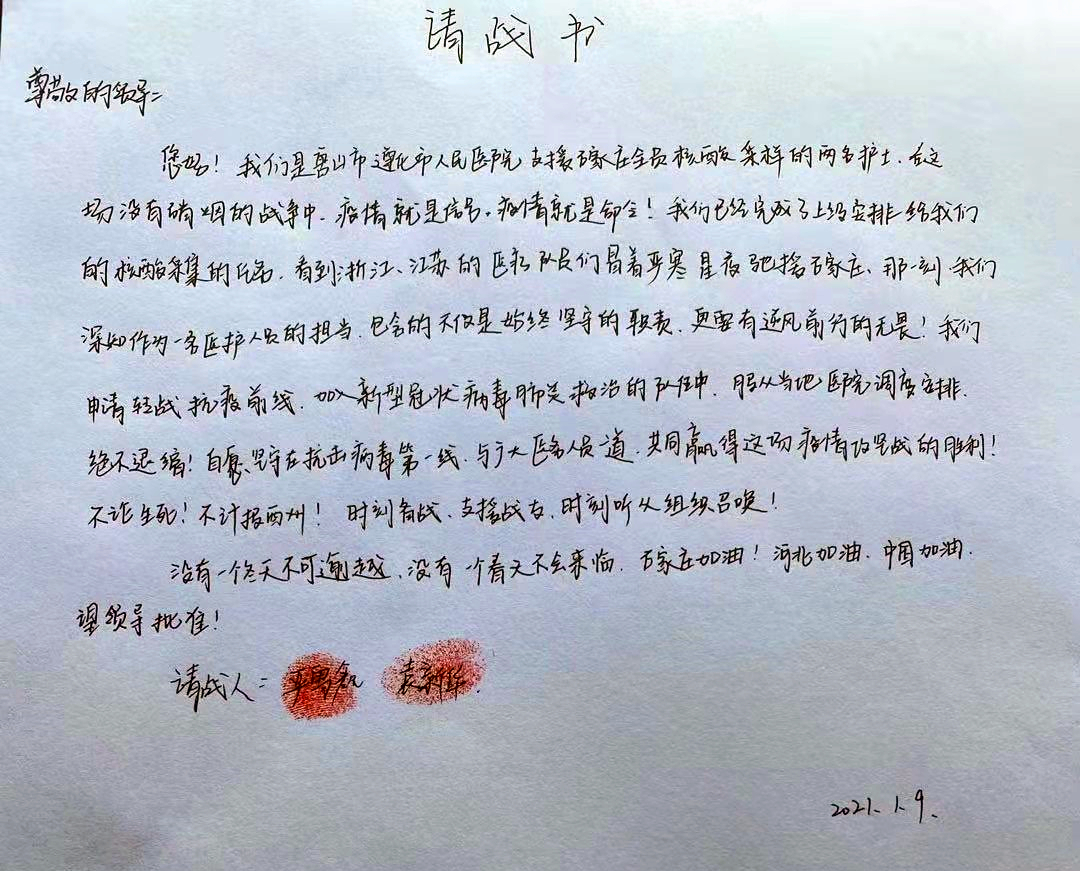 请战书
尊敬的领导:
您好!我们是唐山市遵化市人民医院支援石家庄全员核酸采样的两名护士.在这
场没有硝烟的战争中.疫情就是信号.疫情就是命令!我们已经完成了上级安排给我们
的核酸采集的任务.看到浙江、江苏的医疗队员们冒着严寒星夜驰援石家庄、那一刻.我们
深知作为一名医护人员的担当.包含的不仅是始终坚守的职责.更要有逆风前行的无畏!我们
申请转战抗疫前线.加入新型冠状病毒肺炎救治的队伍中.服从当地医院调度安排.
绝不退缩!自愿坚守在抗击病毒第一线.与广大医务人员一道.共同赢得这场疫情攻坚战的胜利!
不论生死!不计报酬!时刻备战、支援战友、时刻听从组织召唤!
没有一个冬天不可逾越、没有一个春天不会来临.石家庄加油!河北加油.中国加油.
望领导批准!
请战人:
2021.1.9.